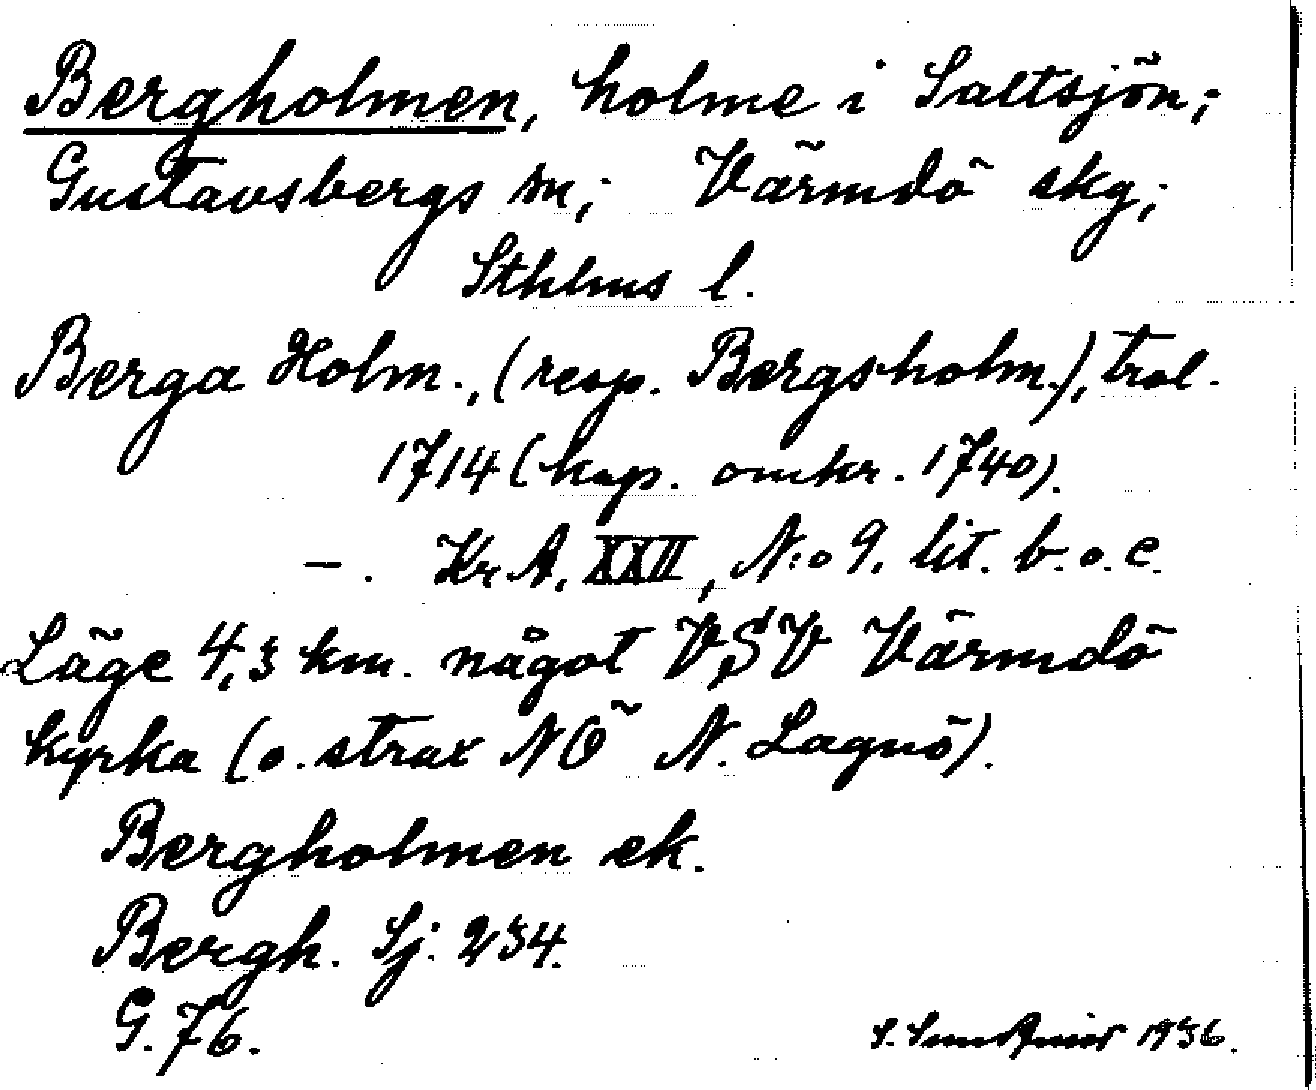 Bergholmen, holme i Saltsjön;
Gustavsbergs sn; Värmdö skg;
Sthlms l.
Berga Holm., (resp. Bergsholm.), trol.
1714 (kop. omkr. 1740).
—. Kr A. XXII, N:o 9. lit. b. o. c.
Läge 4,3 km. något VSV Värmdö
kyrka (o. strax NÖ N. Lagnö).
Bergholmen ek.
Bergh. Sj. 234.
G. 76.
S. 1936.